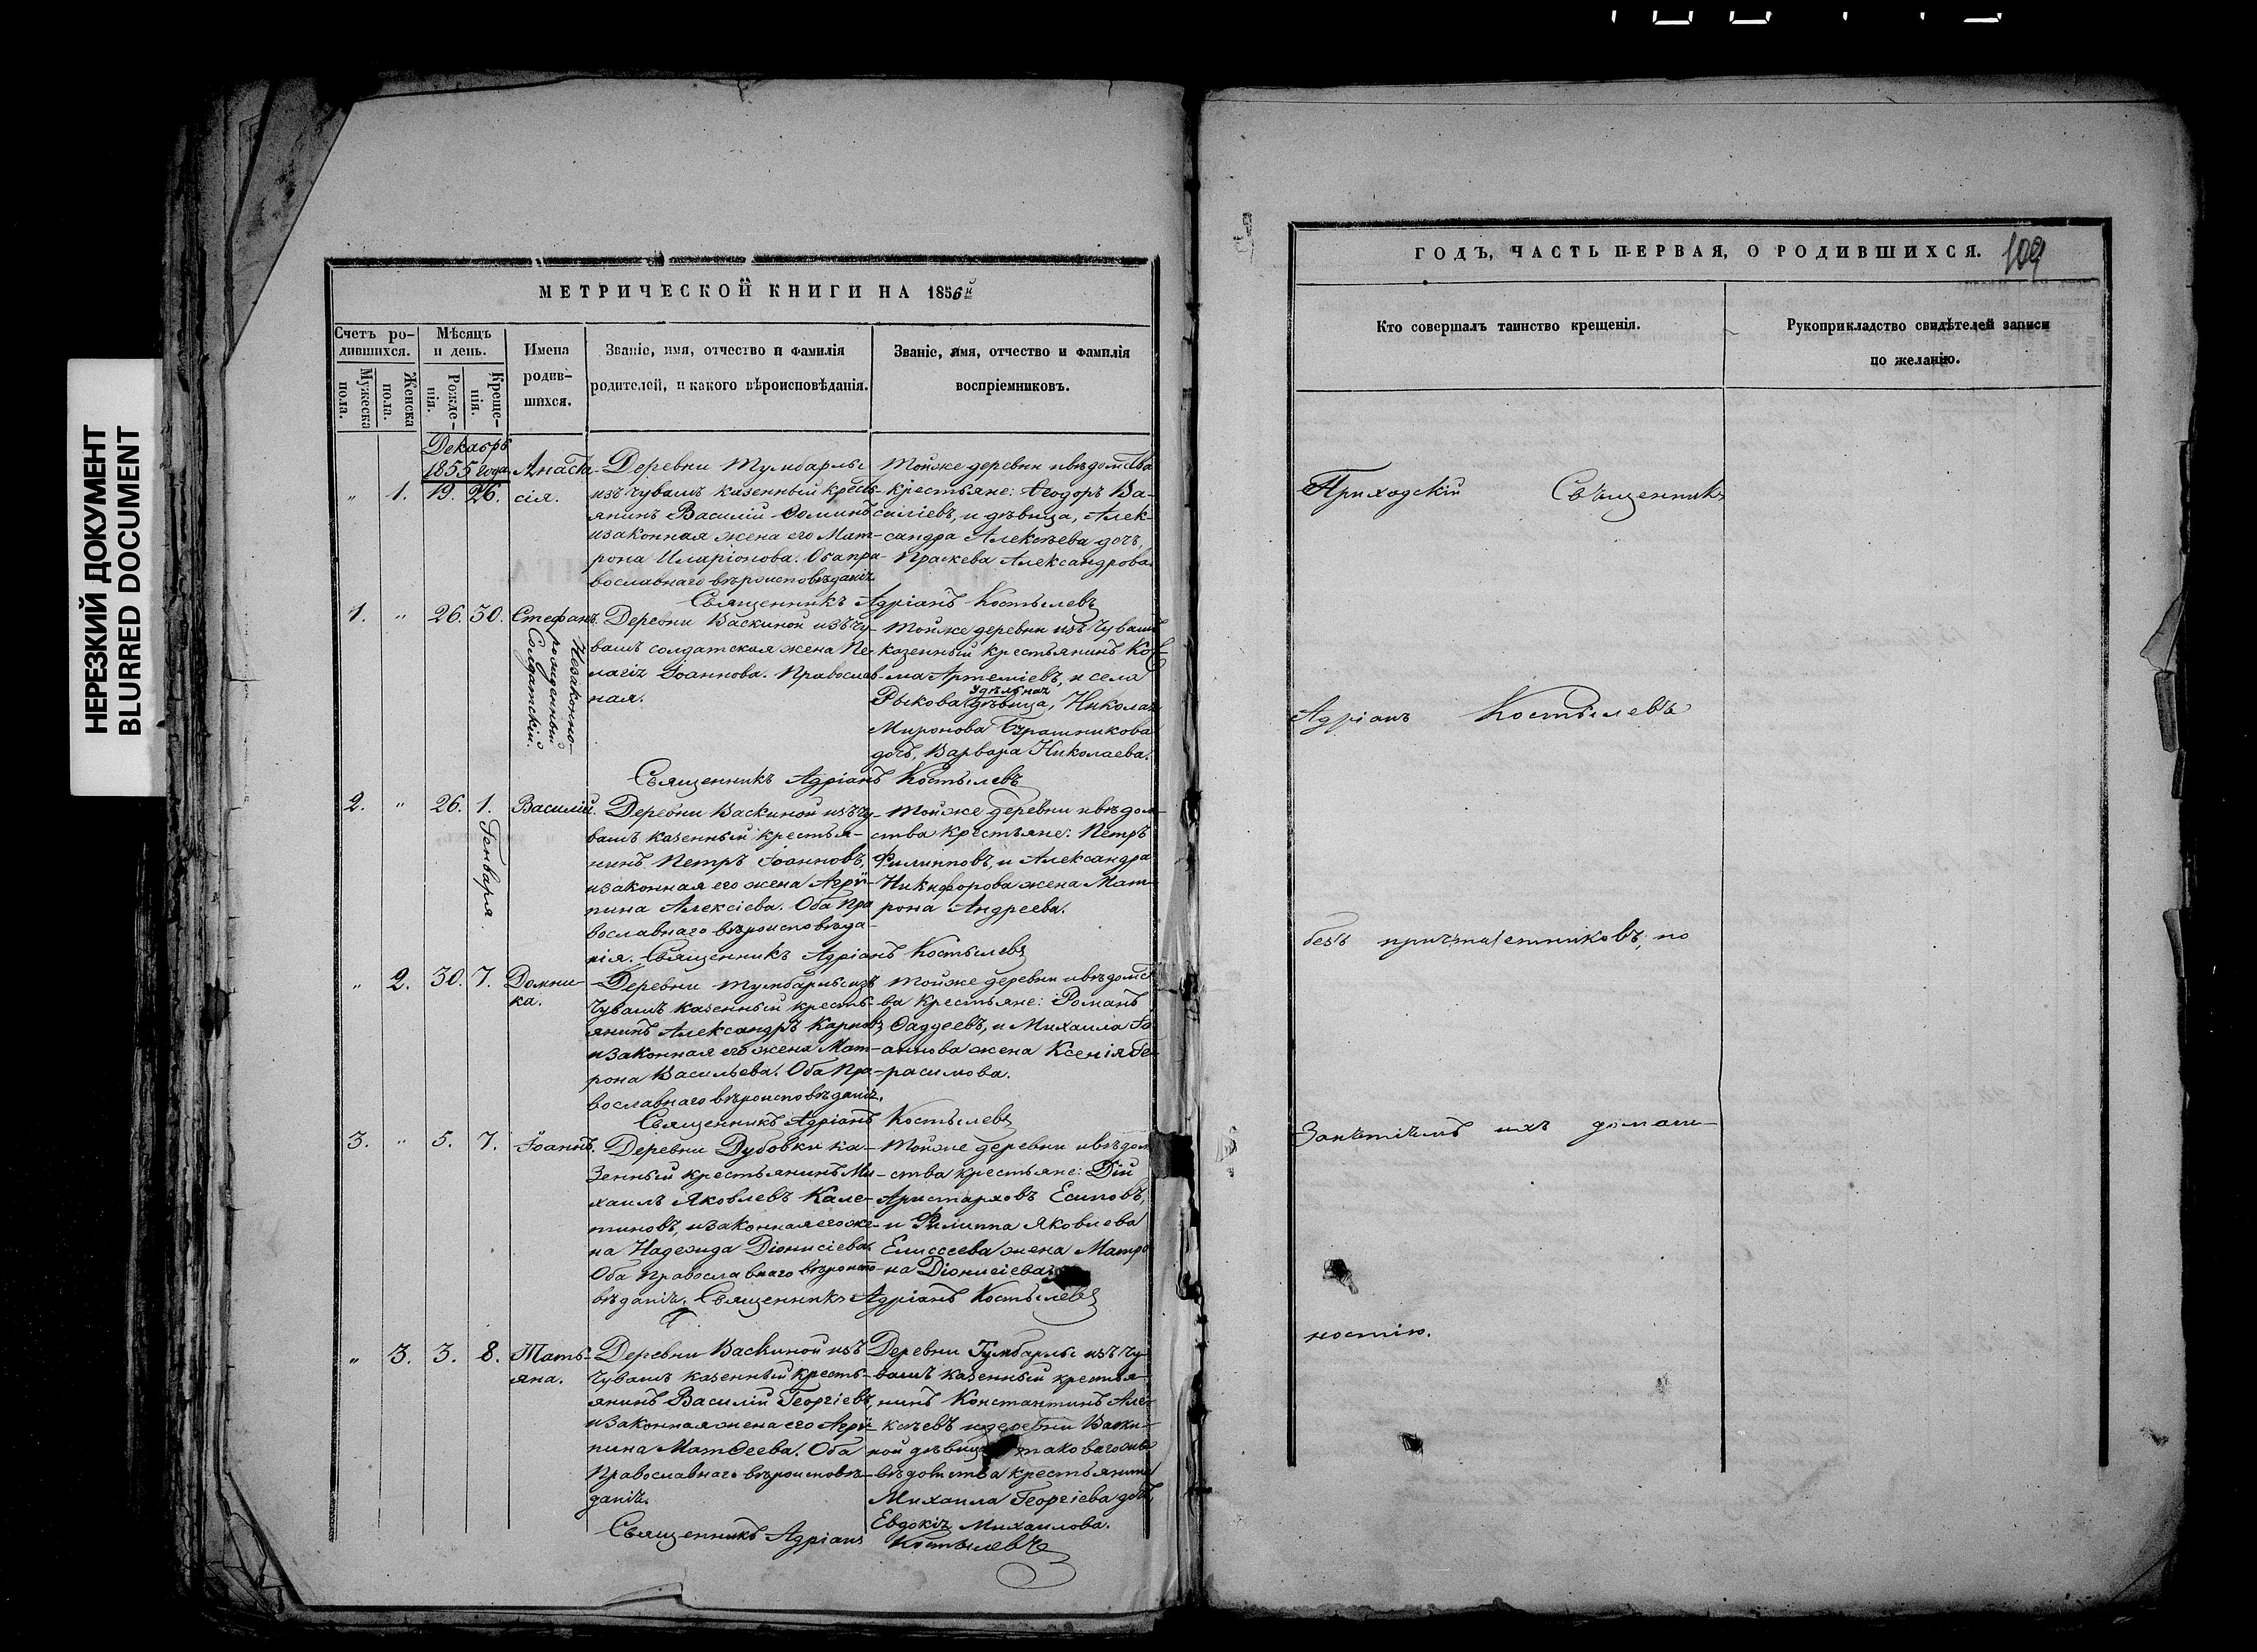 НЕРЕЗКИЙ ДОКУМЕНТ
BLURRED DOCUMENT
МЕТРИЧЕСКОЙ КНИГИ НА 1856й
Счетъ ро-
дившихся.
Мужеска
пола.
Женска
пола.
Мѣсяцъ
и день.
Рожде-
нія.
Креще-
нія.
Имена
родив-
шихся.
Званіе, имя, отчество и фамилія
родителей, и какого вѣроисповѣданія.
Званіе, имя, отчество и фамилія
воспріемниковъ.
Декабрь
1855 года
" 1. 19. 26.
Анаста-
сія.
Деревни Тумбарлы
изъ чувашъ казенный кресть-
янинъ Василій Ѳоминъ
и законная жена его Мат-
рона Иларіонова. Оба пра-
вославнаго вѣроисповѣданія.
Той же деревни и вѣдомства
крестьяне: Ѳеодоръ Ва-
силіевъ, и дѣвица, Алек-
сандра Алексѣева дочь,
Праскева Александрова.
Священникъ Адріанъ Костылевъ
1. " 26. 30.
Стефанъ.
Незаконно-
рожденный
Солдатскій.
Деревни Васкиной изъ чу-
вашъ солдатская жена Пе-
лагія Іоаннова. Православ-
ная.
Той же деревни изъ чувашъ
казенный крестьянинъ Коз-
ма Артеміевъ, и села
Рыкова удѣльная дѣвица, Николая
Миронова Брашникова
дочь, Варвара Николаева.
Священникъ Адріанъ Костылевъ
2. " 26. 1.
Генваря
Василій.
Деревни Васкиной изъ чу-
вашъ казенный крестья-
нинъ Петръ Іоанновъ,
и законная его жена Агрип-
пина Алексіева. Оба пра-
вославнаго вѣроисповѣда-
нія. Священникъ Адріанъ Костылевъ
Той же деревни и вѣдом-
ства крестьяне: Петръ
Филипповъ, и Александра
Никифорова жена Мат-
рона Андреева.
" 2. 30. 7.
Домни-
ка.
Деревни Тумбарлы изъ
чувашъ казенный кресть-
янинъ Александръ Карповъ
и законная его жена Мат-
рона Васильева. Оба пра-
вославнаго вѣроисповѣданія.
Той же деревни и вѣдомст-
ва крестьяне: Романъ
Ѳаддеевъ, и Михаила Іо-
аннова жена Ксенія Ге-
расимова.
Священникъ Адріанъ Костылевъ
3. " 5. 7.
Іоаннъ.
Деревни Дубовки ка-
зенный крестьянинъ Ми-
хаилъ Яковлевъ Кале-
тиновъ, и законная его же-
на Надежда Діонисіева.
Оба православнаго вѣроиспо-
вѣданія. Священникъ Адріанъ Костылевъ
Той же деревни и вѣдом-
ства крестьяне: Дій
Аристарховъ Есиповъ,
и Филиппа Яковлева
Елисеева жена Матро-
на Діонисіева.
" 3. 3. 8.
Тать-
яна.
Деревни Васкиной изъ
чувашъ казенный кресть-
янинъ Василій Георгіевъ,
и законная жена его Агрип-
пина Матѳеева. Оба
Православнаго вѣроисповѣ-
данія.
Деревни Тумбарлы изъ чу-
вашъ казенный крестья-
нинъ Константинъ Але-
ксѣевъ и деревни Васки-
ной дѣвица таковаго же
вѣдомства крестьянина
Михаила Георгіева дочь,
Евдокія Михаилова.
Священникъ Адріанъ Костылевъ
ГОДЪ, ЧАСТЬ ПЕРВАЯ, О РОДИВШИХСЯ.
109
Кто совершалъ таинство крещенія.
Рукоприкладство свидѣтелей записи
по желанію.
Приходскій Священникъ
Адріанъ Костылевъ
безъ причетниковъ, по
занятіямъ ихъ должн-
ностію.